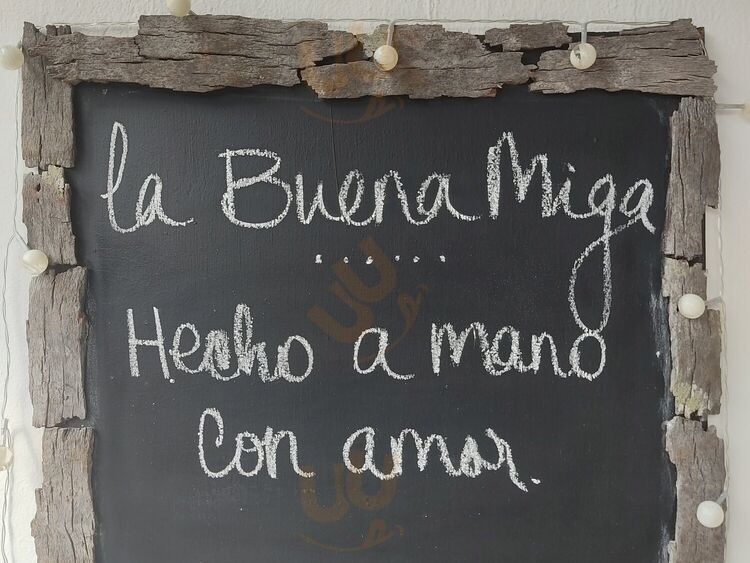 la Buena Miga
......
Hecho a mano
Con amor.